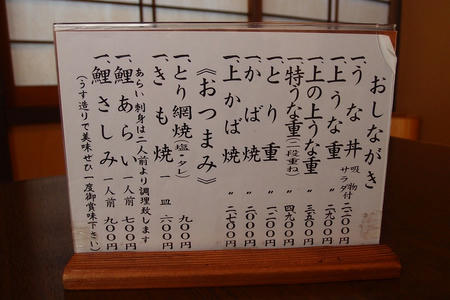 おしながき
一、うな丼 吸物付 サラダ 〃 二二〇〇円
一、上うな重 〃 二九〇〇円
一、上の上うな重 〃 三五〇〇円
一、特うな重(二段重ね) 〃 四九〇〇円
一、とり重 〃
一、かば焼 〃
一、上かば焼 〃 二七〇〇円
《おつまみ》
一、とり網焼(塩・タレ) 九〇〇円
一、きも焼 一皿 六〇〇円
あらい、刺身は二人前より調理致します
一、鯉あらい 一人前 七〇〇円
一、鯉さしみ 一人前 九〇〇円
(うす造りで美味ぜひ一度御賞味下さい)